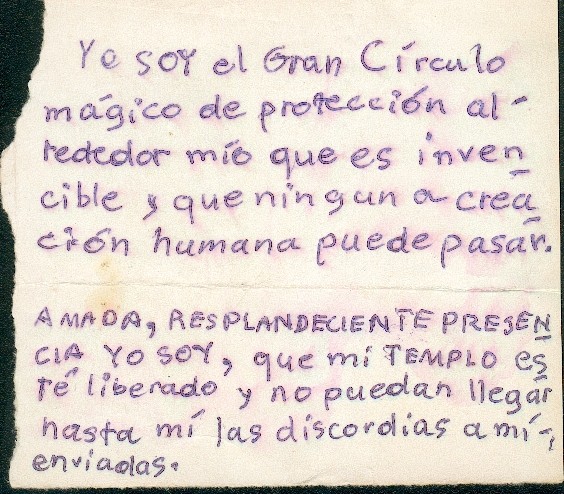 Yo soy el Gran Círculo
mágico de protección al-
rededor mío que es inven
cible y que ningun a crea
ción humana puede pasar.
AMADA, RESPLANDECIENTE PRESEN
CIA YO SOY, que mi TEMPLO es
té liberado y no puedan llegar
hasta mí las discordias a mí-,
enviadas.